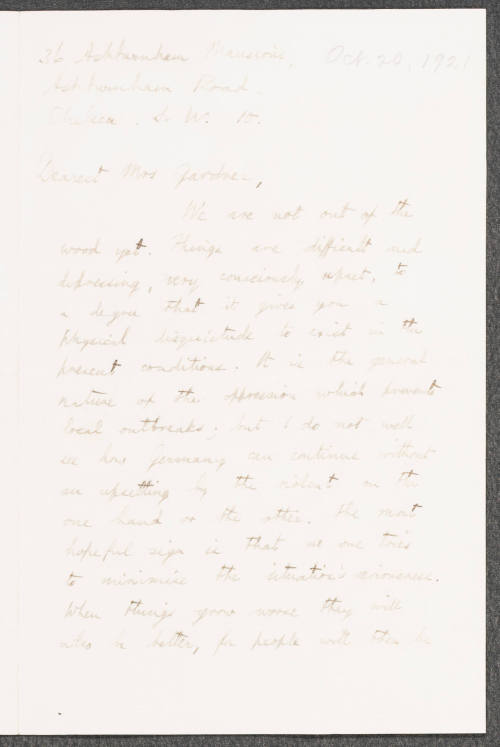 36 Ashburnham Mansions, Oct. 20, 1921
Ashburnham Road.
Chelsea. S. W. 10.
Dearest Mrs Gardner,
We are not out of the
wood yet. Things are difficult and
depressing, very consciously upset, to
a degree that it gives you a
physical disquietude to exist in the
present conditions. It is the general
nature of the oppression which prevents
local outbreaks; but I do not well
see how Germany can continue without
an upsetting by the violent on the
one hand or the other. The most
hopeful sign is that no one tries
to minimise the situation's seriousness.
When things grow worse they will
be better, for people will then be